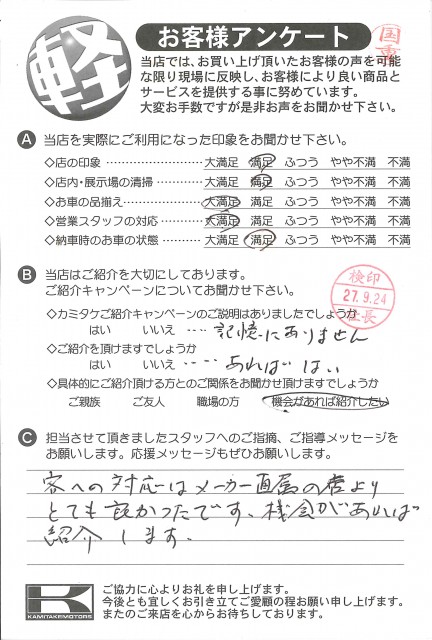 軽
お客様アンケート
国産
当店では、お買い上げ頂いたお客様の声を可能
な限り現場に反映し、お客様により良い商品と
サービスを提供する事に努めています。
大変お手数ですが是非お声をお聞かせ下さい。
A 当店を実際にご利用になった印象をお聞かせ下さい。
◇店の印象 ‥‥‥‥‥‥‥‥ 大満足 満足 ふつう やや不満 不満
◇店内・展示場の清掃‥‥‥‥ 大満足 満足 ふつう やや不満 不満
◇お車の品揃え‥‥‥‥‥‥‥ 大満足 満足 ふつう やや不満 不満
◇営業スタッフの対応‥‥‥‥ 大満足 満足 ふつう やや不満 不満
◇納車時のお車の状態‥‥‥‥ 大満足 満足 ふつう やや不満 不満
B 当店はご紹介を大切にしております。
ご紹介キャンペーンについてお聞かせ下さい。
検印
27.9.24
社長
◇カミタケご紹介キャンペーンのご説明はありましたでしょうか
はい いいえ ‥‥ 記憶にありません
◇ご紹介を頂けますでしょうか
はい いいえ ‥‥ あればはい
◇具体的にご紹介頂ける方とのご関係をお聞かせ頂けますでしょうか
ご親族 ご友人 職場の方 機会があれば紹介したい
C 担当させて頂きましたスタッフへのご指摘、ご指導メッセージを
お願いします。応援メッセージもぜひお願いします。
客への対応はメーカー直属の店より
とても良かったです、機会があれば
紹介します。
K
KAMITAKEMOTORS
ご協力に心よりお礼を申し上げます。
今後とも宜しくお引き立てご愛顧の程お願い申し上げます。
またのご来店を心からお待ちしております。